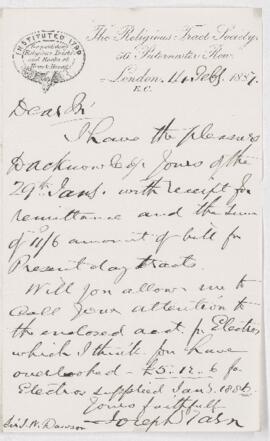 INSTITUTED 1799
The Religious Tract Society,
56 Paternoster Row
London, 4 Feby. 1887.
E.C.
Dear Sir
I have the pleasure
to acknowledge yours of the
29th Jany. with receipt for
remittance and the sum
of 11/6 amount of bill for
Present day tracts.
Will you allow me to
call your attention to
the enclosed acct. for Electros
which I think you have
overlooked - £5.12.6 for
Electros supplied Jany. 1886.
Yours faithfully
Joseph Tarn
Sir J. W. Dawson